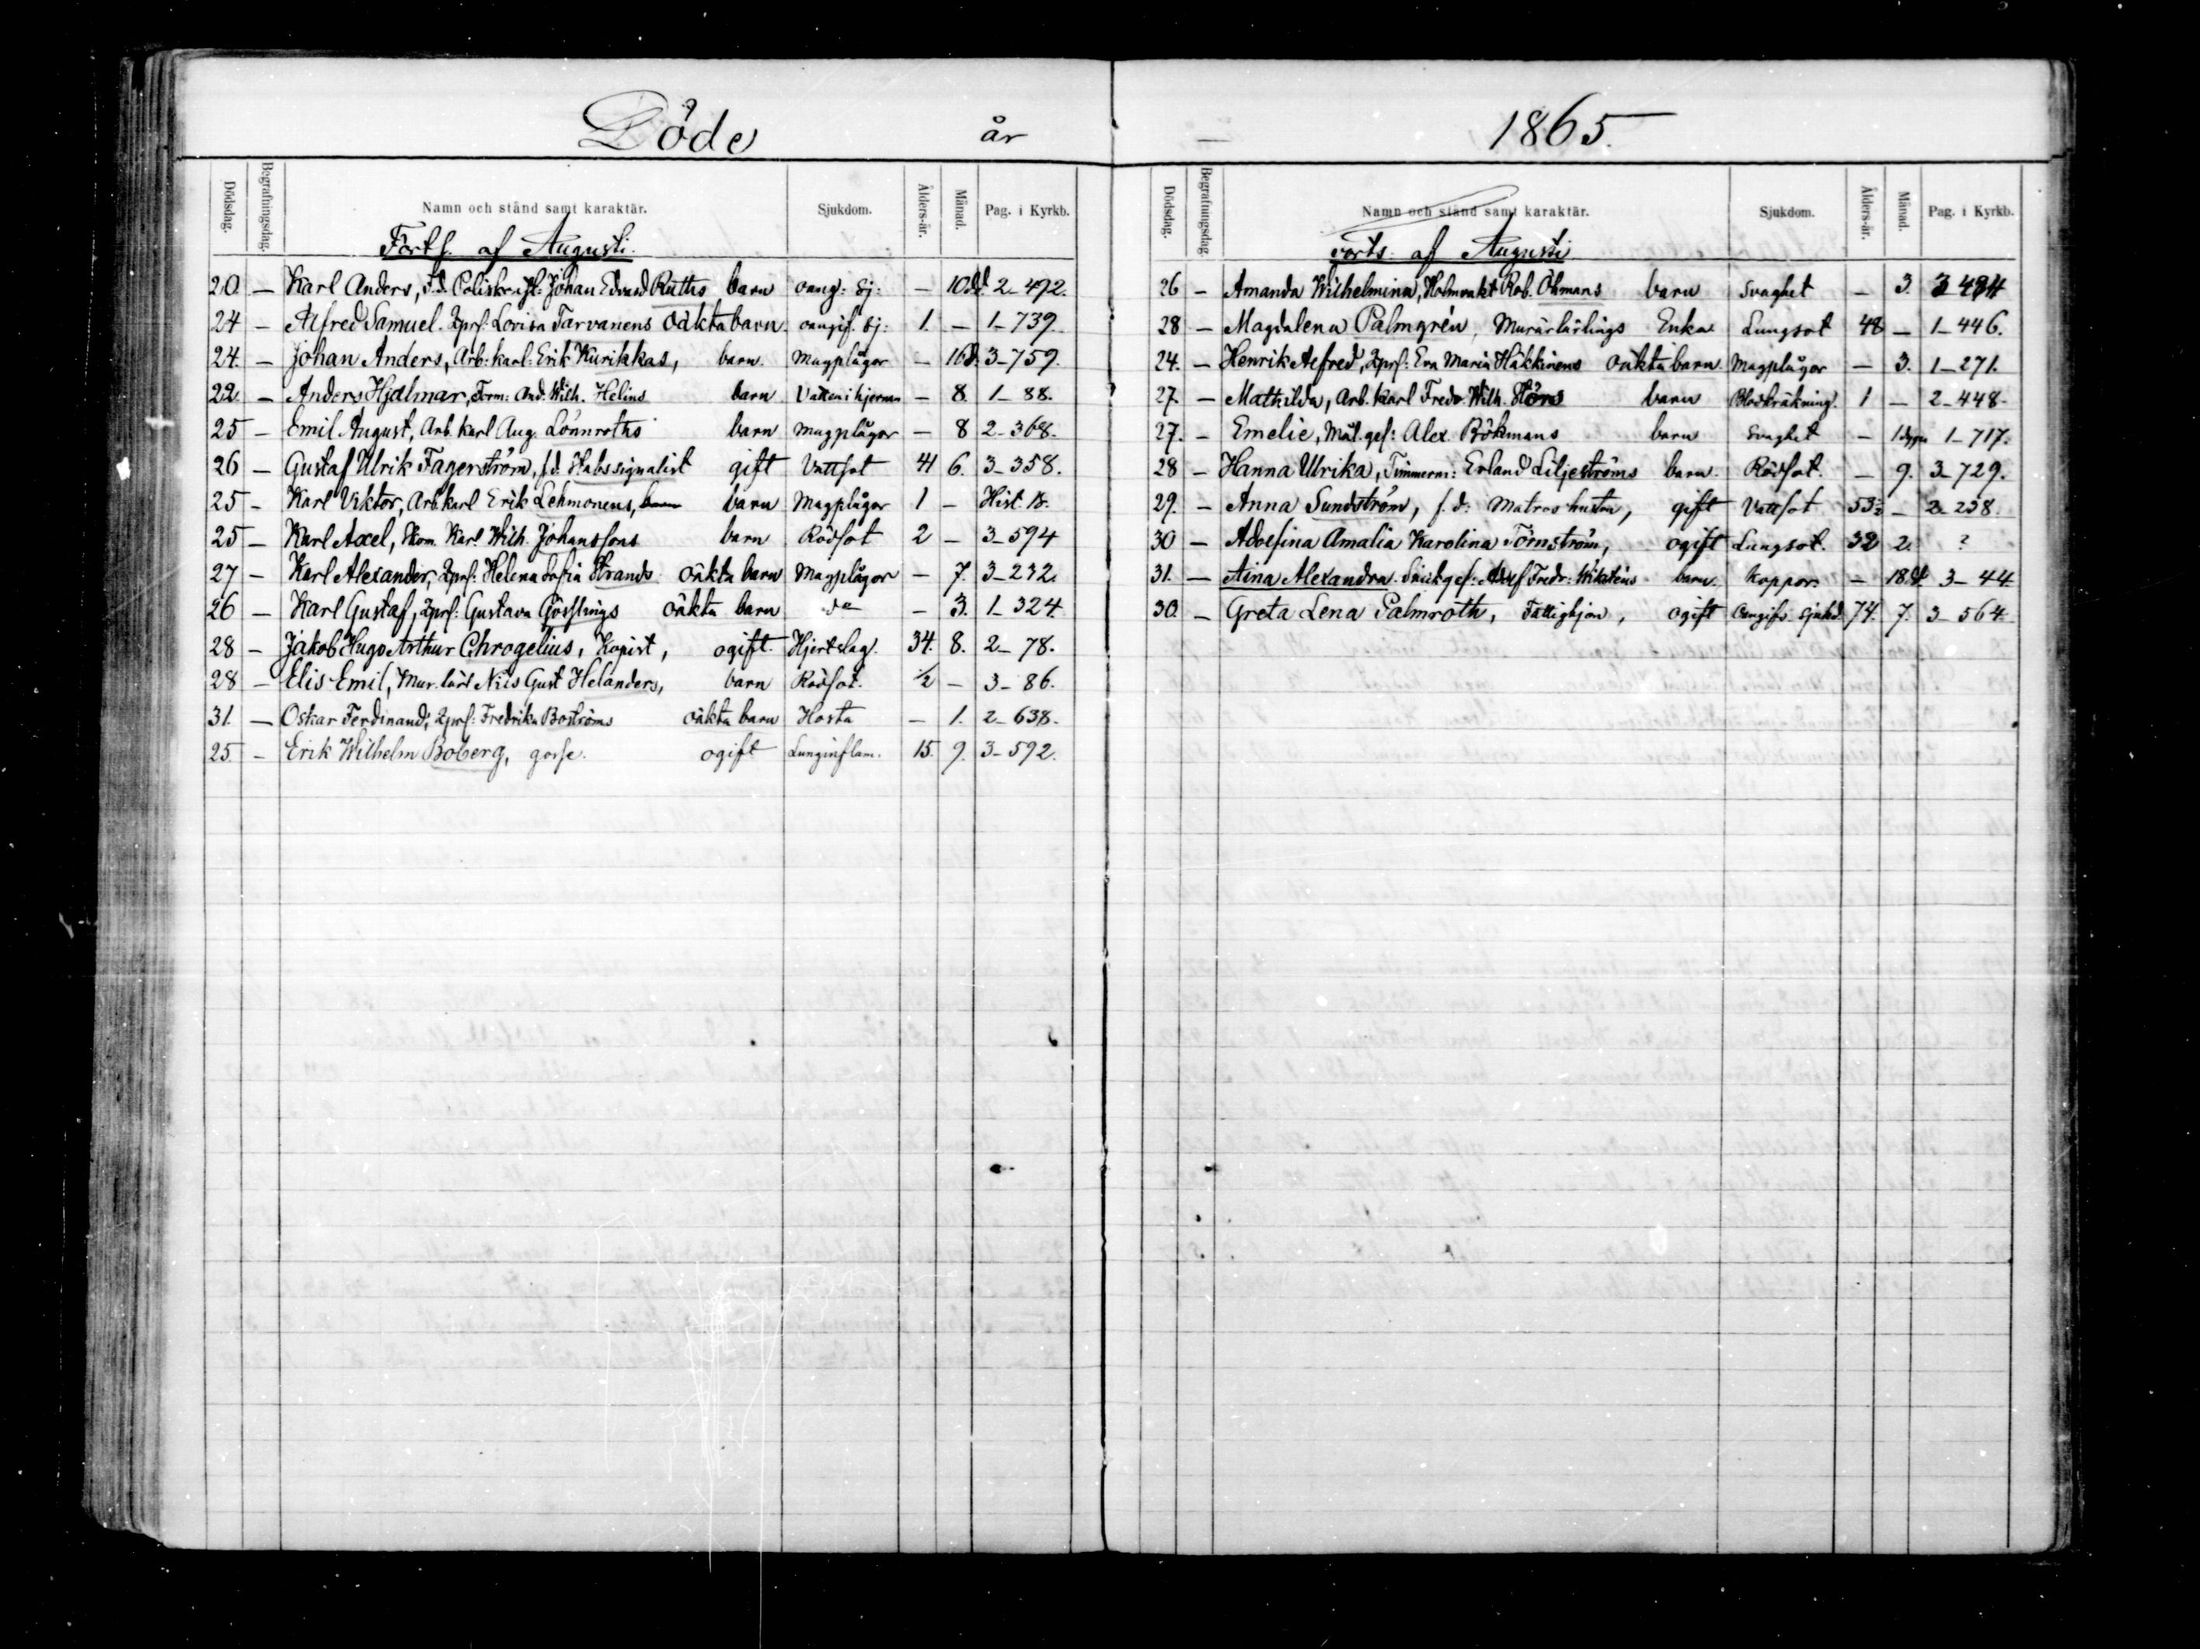 Döde år
Dödsdag. Begrafningsdag. Namn och stånd samt karaktär. Sjukdom. Ålders-år. Månad. Pag. i Kyrkb.
Forts. af Augusti.
20. — Karl Anders, f.d. Johan Edvard Ruths barn oang: sj: — 10 d. 2-492.
24 — Alfred Samuel. Qprs: Lovisa Tarvanens oäkta barn. oangif. sj: 1. — 1-739.
24. — Johan Anders, Arb: karl: Erik Kurikkas, barn. Magplågor — 16 d. 3-759.
22 — Anders Hjalmar, Form: And. Wilh. Helins barn Vatten i hjernan — 8 1-88.
25 — Emil August, Arb. karl Aug. Lönnroths barn Magplågor — 8 2-368.
26 — Gustaf Ulrik Fagerström, f.d. Habssignalist gift Vattsot 41 6. 3-358.
25 — Karl Viktor, Arb. karl Erik Lehmonens, barn Magplågor 1 — Hist. B.
25 — Karl Axel, Skom. Karl Wilh. Johanssons barn Rödsot 2 — 3-594
27 — Karl Alexander, Qprs: Helena Sofia Strands oäkta barn Magplågor — 7. 3-232.
26 — Karl Gustaf, Qprs: Gustava Gösslings oäkta barn do — 3. 1-324.
28 — Jakob Hugo Arthur Chrogelius, Kopist, ogift. Hjertslag. 34. 8. 2-78.
28 — Elis Emil, Mur. lärl Nils Gust Helanders, barn Rödsot. 1/2 — 3-86.
31. — Oskar Ferdinand, Qprs: Fredrika Boströms oäkta barn Hosta — 1. 2-638.
25. — Erik Wilhelm Boberg, gosse. ogift Lunginflam. 15. 9. 3-592.
1865.
Dödsdag. Begrafningsdag Namn och stånd samt karaktär. Sjukdom. Ålders-år. Månad. Pag. i Kyrkb.
Forts. af Augusti
26 — Amanda Wilhelmina, Holmvakt Rob. Öhmans barn Svaghet — 3. 3 484
28 — Magdalena Palmgrén, Murärlärlings Enka Lungsot 48 — 1-446.
24. — Henrik Alfred, Qprs: Eva Maria Häkkinens oäkta barn. Magplågor — 3. 1-271.
27. — Mathilda, Arb. karl Fredr. Wilh. Hörs barn Blodkräkning. 1 — 2-448.
27. — Emelie, Mål. ges: Alex. Bökmans barn Svaghet — 1 dygn 1-717.
28 — Hanna Ulrika, Timmerm: Erland Liljeströms barn Rödsot. — 9. 3-729.
29. — Anna Sundström, f.d: Matros hustru, gift Vattsot 53½ — 2-238.
30 — Adolfina Amalia Karolina Törnström, ogift Lungsot. 32 2. ?
31. — Aina Alexandra. Snick. ges: Adolf Fredr: Wiksténs barn. Koppor. — 18. d. 3-44
30. — Greta Lena Palmroth, Fattighjon, ogift Oangifv. sjukd. 74. 7. 3-564.